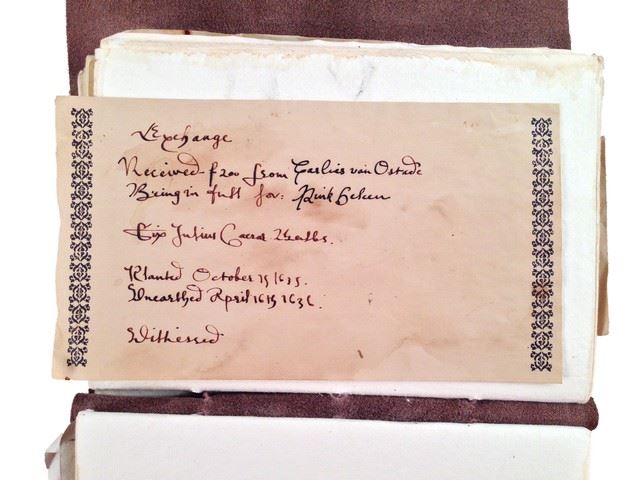 Exchange
Received f200 from Carlies van Ostade
Being in full for:
Six Julius Caesar
Planted October 15 1635.
Unearthed April 16th 1636.
Witnessed